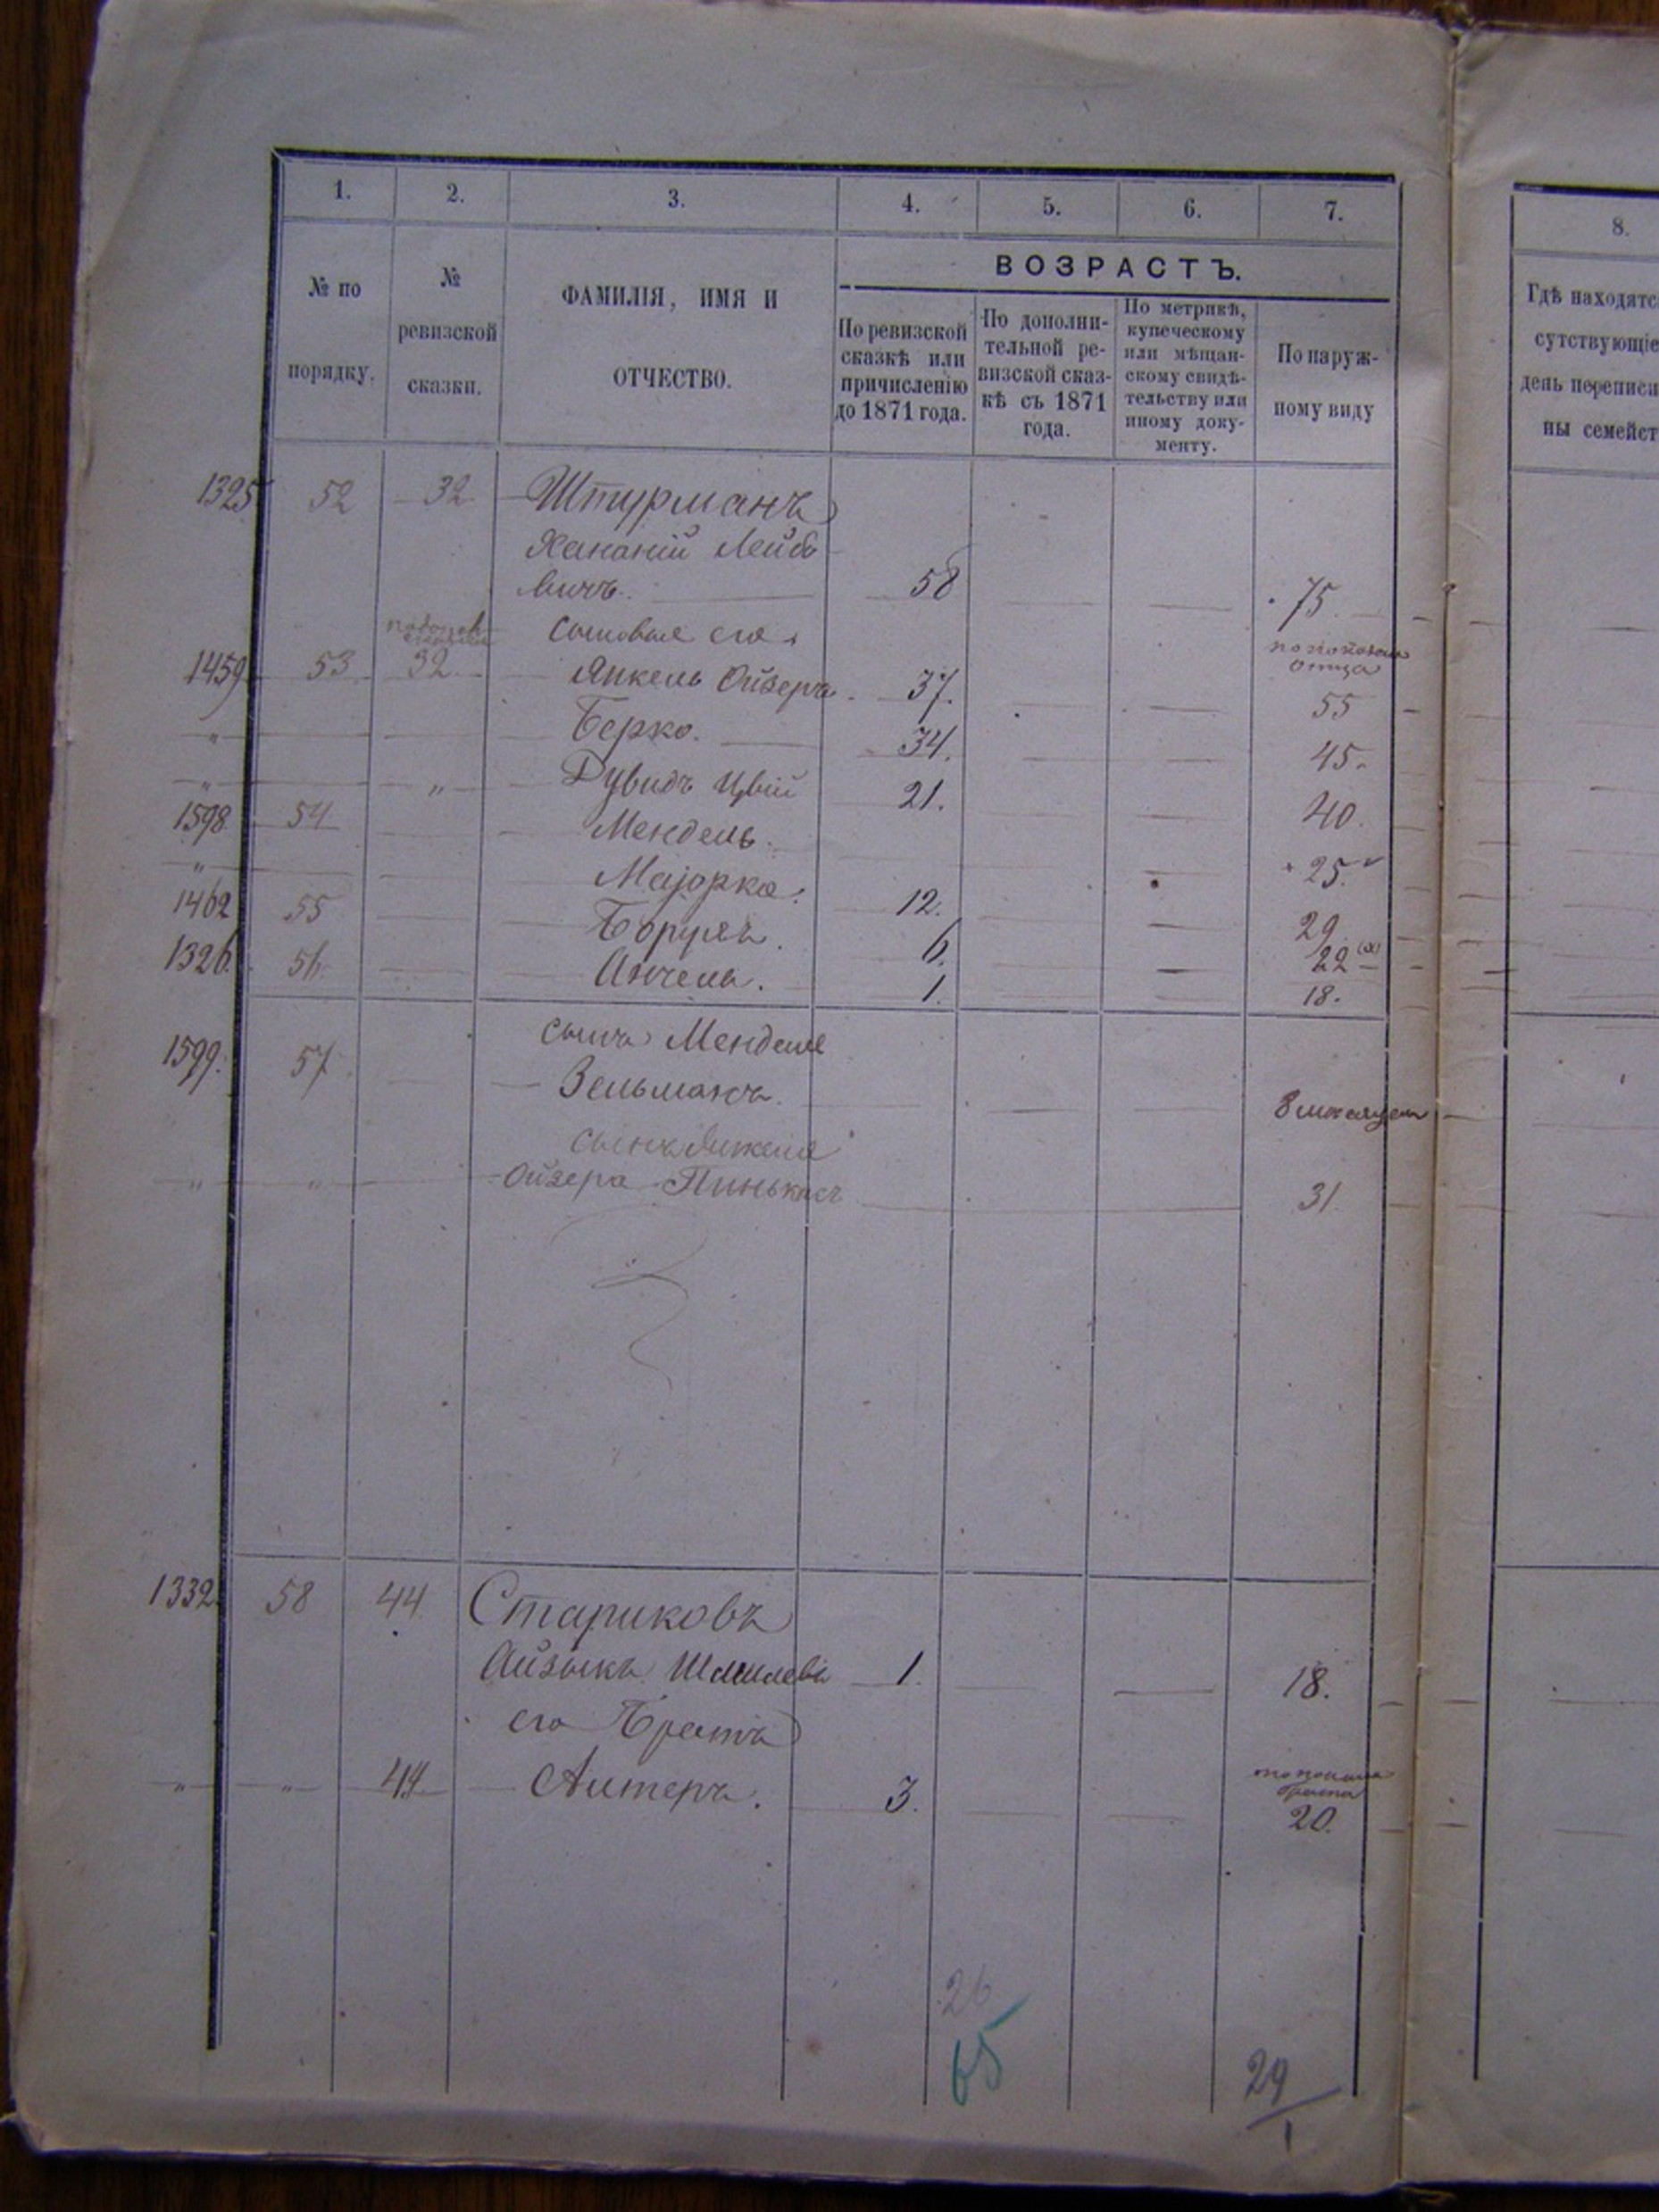 1. 2. 3. 4. 5. 6. 7.
8.
ВОЗРАСТЪ.
№ по порядку.
№ ревизской сказки.
ФАМИЛІЯ, ИМЯ И ОТЧЕСТВО.
По ревизской сказкѣ или причисленію до 1871 года.
По дополнительной ревизской сказкѣ съ 1871 года.
По метрикѣ, купеческому или мѣщанскому свидѣтельству или иному документу.
По наружному виду
Гдѣ находятс
сутствующіе
день переписи
ны семейст
1325 52 32 Штурманъ
Хананій Лейбо
вичъ. 58 75
Сыновья его
1459 53 32 Янкель Ойзеръ 37. 55
" Берко. 34. 45.
" " Рувидъ Цвій 21. 40.
1598 54 Мендель. 25.
" Маіорка. 12. 29
1462 55 Борухъ. 6. 22
1326. 56. Анчель. 1. 18.
Сынъ Менделя
1599. 57 Зельманъ. 8 месяцевъ
Сынъ Янкеля
" " Ойзера Пинькасъ 31.
1332. 58 44. Стариковъ
Айзыкъ 1. 18.
его Братъ
" " 44 Алтеръ. 3. 20.
26
65
29
1